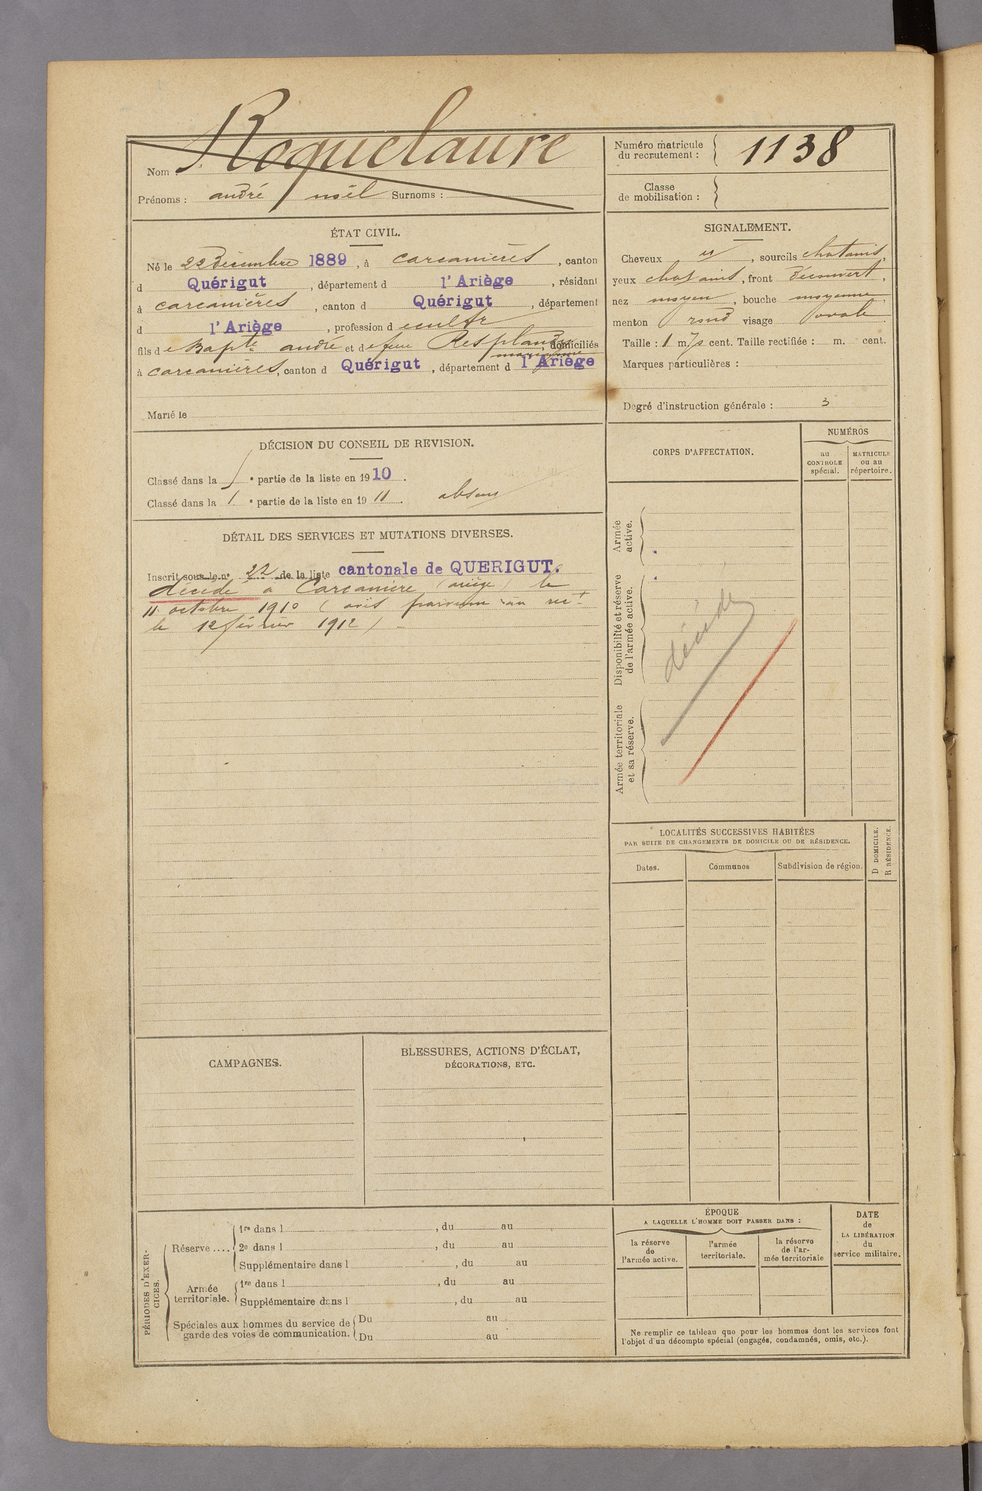 Nom Roquelaure
Prénoms : andré noël Surnoms :
Numéro matricule du recrutement : 1138
Classe de mobilisation :
ÉTAT CIVIL.
Né le 22 Décembre 1889, à carcanières, canton
d Quérigut, département d l'Ariège, résidant
à carcanières, canton d Quérigut, département
d l'Ariège, profession d cultr
fils de Bapte andré et de feue Resplandy domiciliés
à carcanières, canton d Quérigut, département d l'Ariège
Marié le
SIGNALEMENT.
Cheveux , sourcils chatains,
yeux chatains, front Découvert,
nez moyen, bouche moyenne,
menton rond visage ovale
Taille : 1 m. cent. Taille rectifiée : m. cent.
Marques particulières :
Degré d'instruction générale : 3
DÉCISION DU CONSEIL DE REVISION.
Classé dans la e partie de la liste en 1910.
Classé dans la 1 e partie de la liste en 1911 absent
DÉTAIL DES SERVICES ET MUTATIONS DIVERSES.
Inscrit sous le no 22 de la liste cantonale de QUERIGUT.
décédé à Carcanière (ariège) le
11 octobre 1910 (avis parvenu au rect
le 12 février 1912)
CORPS D'AFFECTATION.
NUMÉROS
au CONTROLE spécial.
MATRICULE ou au répertoire.
Armée active.
Disponibilité et réserve de l'armée active.
Armée territoriale et sa réserve.
décédé
LOCALITÉS SUCCESSIVES HABITÉES
PAR SUITE DE CHANGEMENTS DE DOMICILE OU DE RÉSIDENCE.
Dates.
Communes
Subdivision de région.
D DOMICILE.
R RÉSIDENCE.
CAMPAGNES.
BLESSURES, ACTIONS D'ÉCLAT,
DÉCORATIONS, ETC.
PÉRIODES D'EXERCICES.
Réserve ....
1re dans l , du au
2e dans l , du au
Supplémentaire dans l , du au
Armée territoriale.
1re dans l , du au
Supplémentaire dans l , du au
Spéciales aux hommes du service de garde des voies de communication.
Du au
Du au
ÉPOQUE
A LAQUELLE L'HOMME DOIT PASSER DANS :
la réserve de l'armée active.
l'armée territoriale.
la réserve de l'armée territoriale
DATE de LA LIBÉRATION du service militaire.
Ne remplir ce tableau que pour les hommes dont les services font
l'objet d'un décompte spécial (engagés, condamnés, omis, etc.).